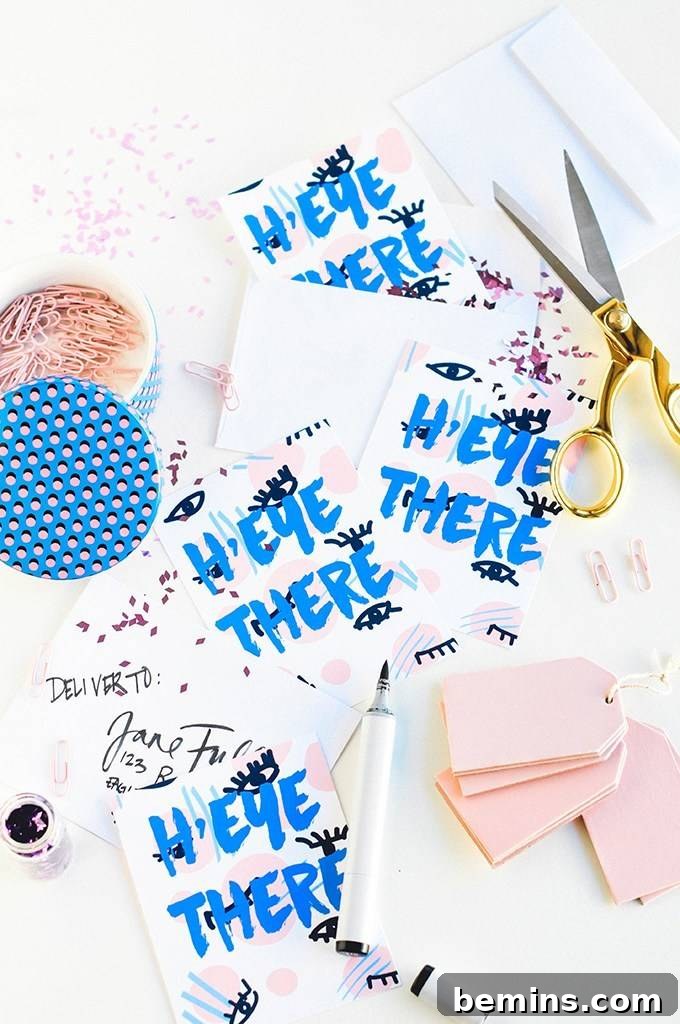 H'EYE
THERE
H'EYE
THERE
H'EYE
THERE
DELIVER TO:
Jane
123
H'EYE
THERE
bemins.com